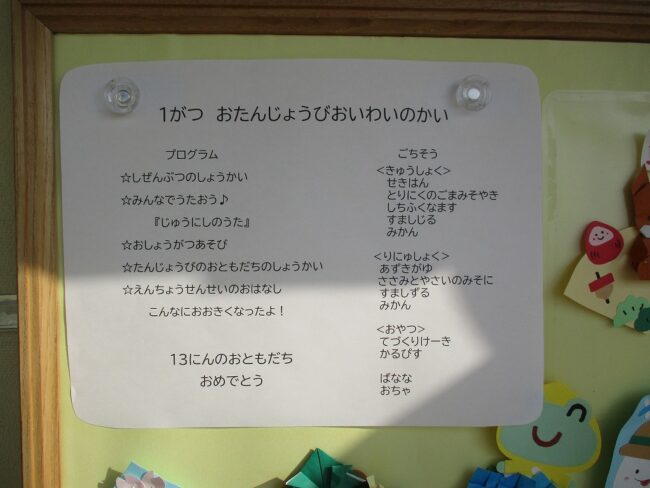 1がつ　おたんじょうびおいわいのかい
プログラム
☆しぜんぶつのしょうかい
☆みんなでうたおう♪
『じゅうにしのうた』
☆おしょうがつあそび
☆たんじょうびのおともだちのしょうかい
☆えんちょうせんせいのおはなし
こんなにおおきくなったよ！
13にんのおともだち
おめでとう
ごちそう
＜きゅうしょく＞
せきはん
とりにくのごまみそやき
しちふくなます
すましじる
みかん
＜りにゅしょく＞
あずきがゆ
ささみとやさいのみそに
すましずる
みかん
＜おやつ＞
てづくりけーき
かるぴす
ばなな
おちゃ